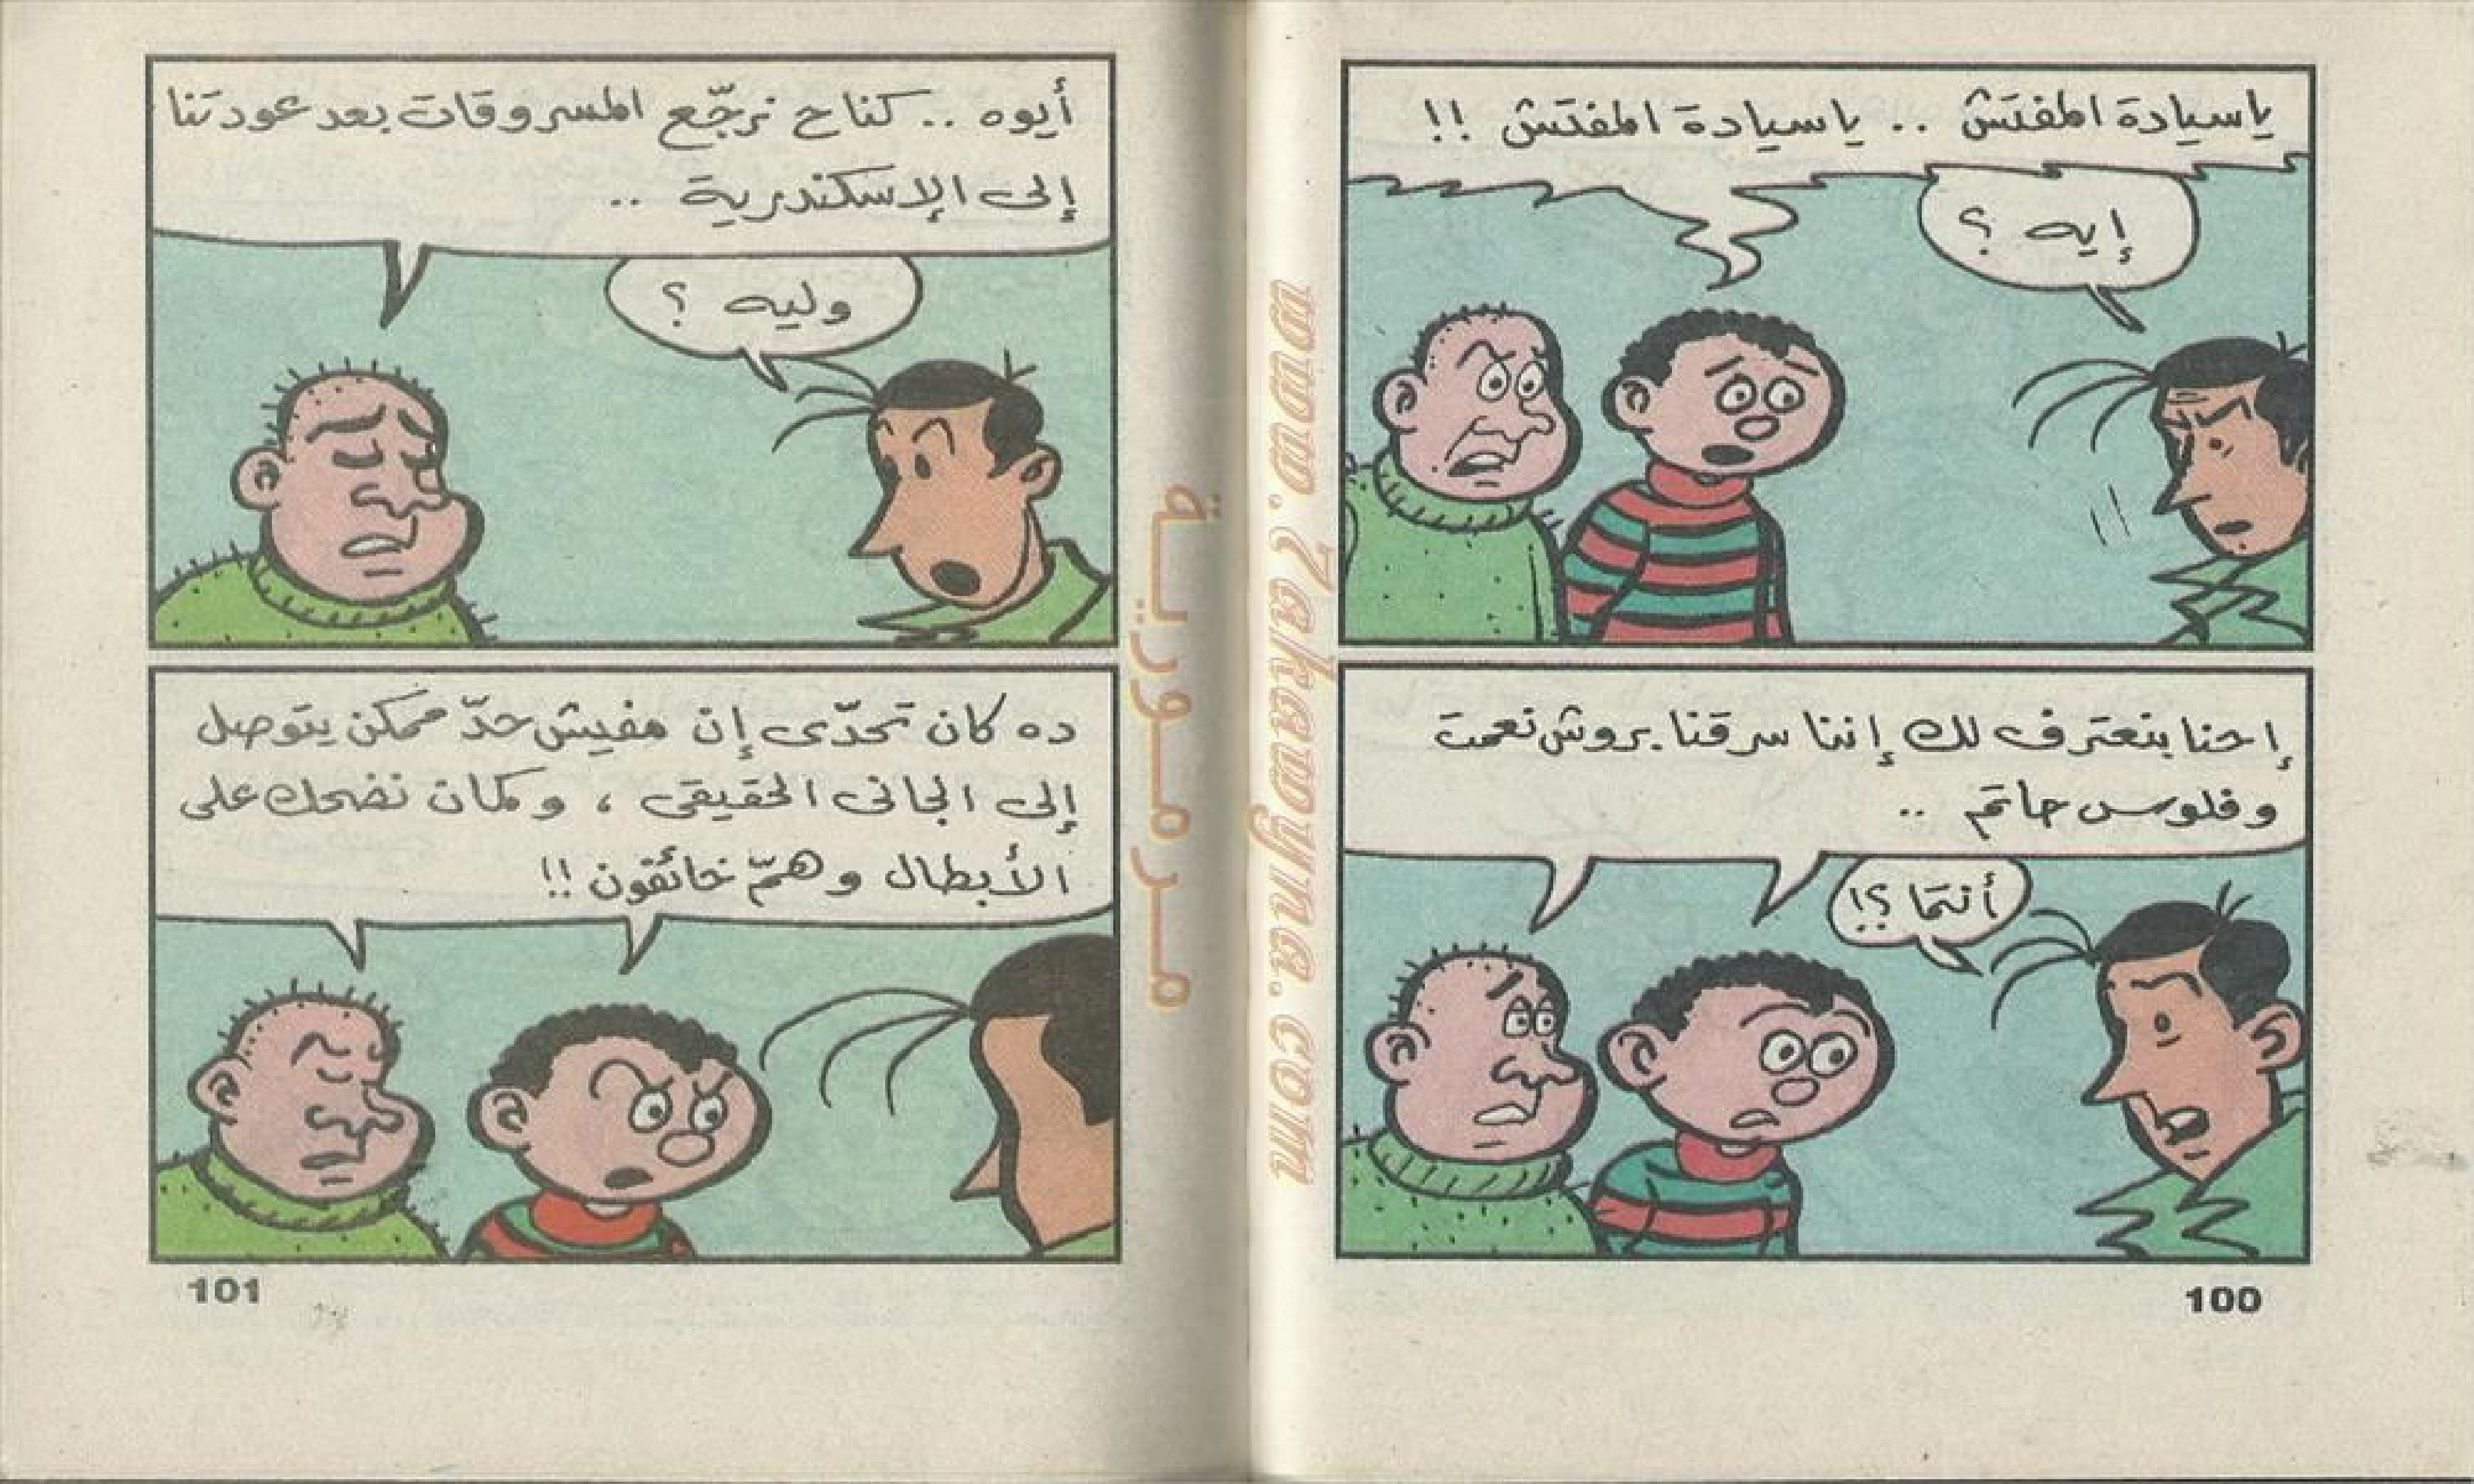 ياسيادة المفتش .. ياسيادة المفتش !!
إيه ؟
إحنا بنعترف لك إننا سرقنا بروش نعمت
وفلوس حاتم ..
أنتما ؟!
100
أيوه .. كنا ح نرجّع المسروقات بعد عودتنا
إلى الإسكندرية ..
وليه ؟
ده كان تحدّى إن مفيش حدّ ممكن يتوصل
إلى الجانى الحقيقى ، وكمان نضحك على
الأبطال وهمّ خائفون !!
101
مرمورية
www.7akawyna.com